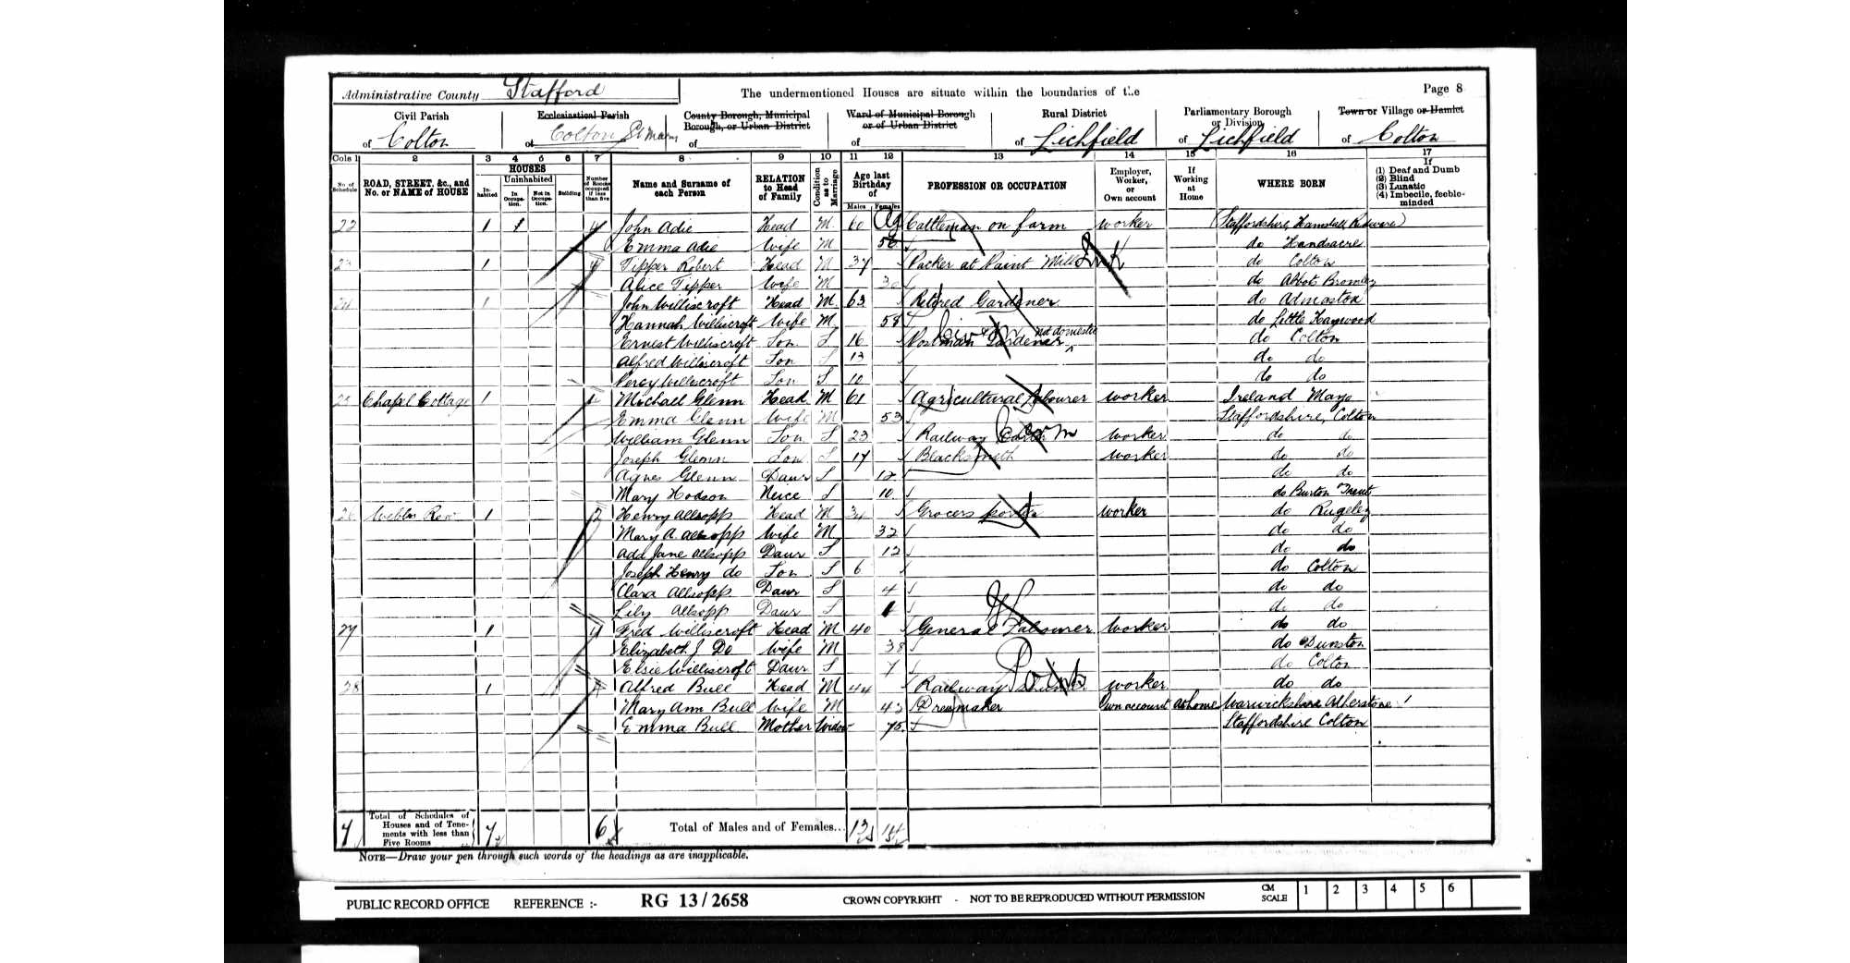 Administrative County Stafford The undermentioned Houses are situate within the boundaries of the Page 8
Civil Parish of Colton
Ecclesiastical Parish of Colton St Mary
County Borough, Municipal Borough, or Urban District of
Ward of Municipal Borough or of Urban District of
Rural District of Lichfield
Parliamentary Borough or Division of Lichfield
Town or Village or Hamlet of Colton
Cols 1 2 3 4 5 6 7 8 9 10 11 12 13 14 15 16 17
No. of Schedule
ROAD, STREET, &c., and No. or NAME of HOUSE
HOUSES
Inhabited
Uninhabited
In Occupation.
Not in Occupation.
Building
Number of Rooms occupied if less than five
Name and Surname of each Person
RELATION to Head of Family
Condition as to Marriage
Age last Birthday of
Males Females
PROFESSION OR OCCUPATION
Employer, Worker, or Own account
If Working at Home
WHERE BORN
If (1) Deaf and Dumb (2) Blind (3) Lunatic (4) Imbecile, feeble-minded
22 1 1 4 John Adie Head M 60 Cattleman on farm worker Staffordshire, Hamstall Ridware
Emma Adie Wife M 56 do Handsacre
23 1 4 Tipper Robert Head M 37 Packer at Paint Mill do Colton
Alice Tipper Wife M do Abbot Bromley
24 1 John Williscroft Head M 63 Retired Gardener do Admaston
Hannah Williscroft Wife M 58 do Little Haywood
Ernest Williscroft Son S 16 Postman Gardener not domestic do Colton
Alfred Williscroft Son S 13 do do
Percy Williscroft Son S 10 do do
25 Chapel Cottage 1 Michael Glenn Head M 61 Agricultural Labourer worker Ireland Mayo
Emma Glenn Wife M 53 Staffordshire, Colton
William Glenn Son S 23 Railway worker do do
Joseph Glenn Son S 17 Blacksmith worker do do
Agnes Glenn Daur S 12 do do
Mary Hodson Neice S 10 do Burton Trent
26 1 Henry Allsopp Head M 34 Grocers porter worker do Rugeley
Mary A. Allsopp Wife M 32 do do
Ada Jane Allsopp Daur S 12 do do
Joseph Henry do Son S 6 do Colton
Clara Allsopp Daur S 4 do do
Lily Allsopp Daur S 1 do do
27 1 4 Fred Williscroft Head M 40 General Labourer worker do do
Elizabeth J Do Wife M 38 do Dunston
Elsie Williscroft Daur S 7 do Colton
28 1 Alfred Bull Head M 44 Railway worker do do
Mary Ann Bull Wife M Dressmaker Own account at home Warwickshire Atherstone
Emma Bull Mother Widow 75 Staffordshire Colton
7 Total of Schedules of Houses and of Tenements with less than Five Rooms 7 6 Total of Males and of Females... 13 14
NOTE—Draw your pen through such words of the headings as are inapplicable.
PUBLIC RECORD OFFICE REFERENCE :- RG 13/2658 CROWN COPYRIGHT - NOT TO BE REPRODUCED WITHOUT PERMISSION CM SCALE 1 2 3 4 5 6